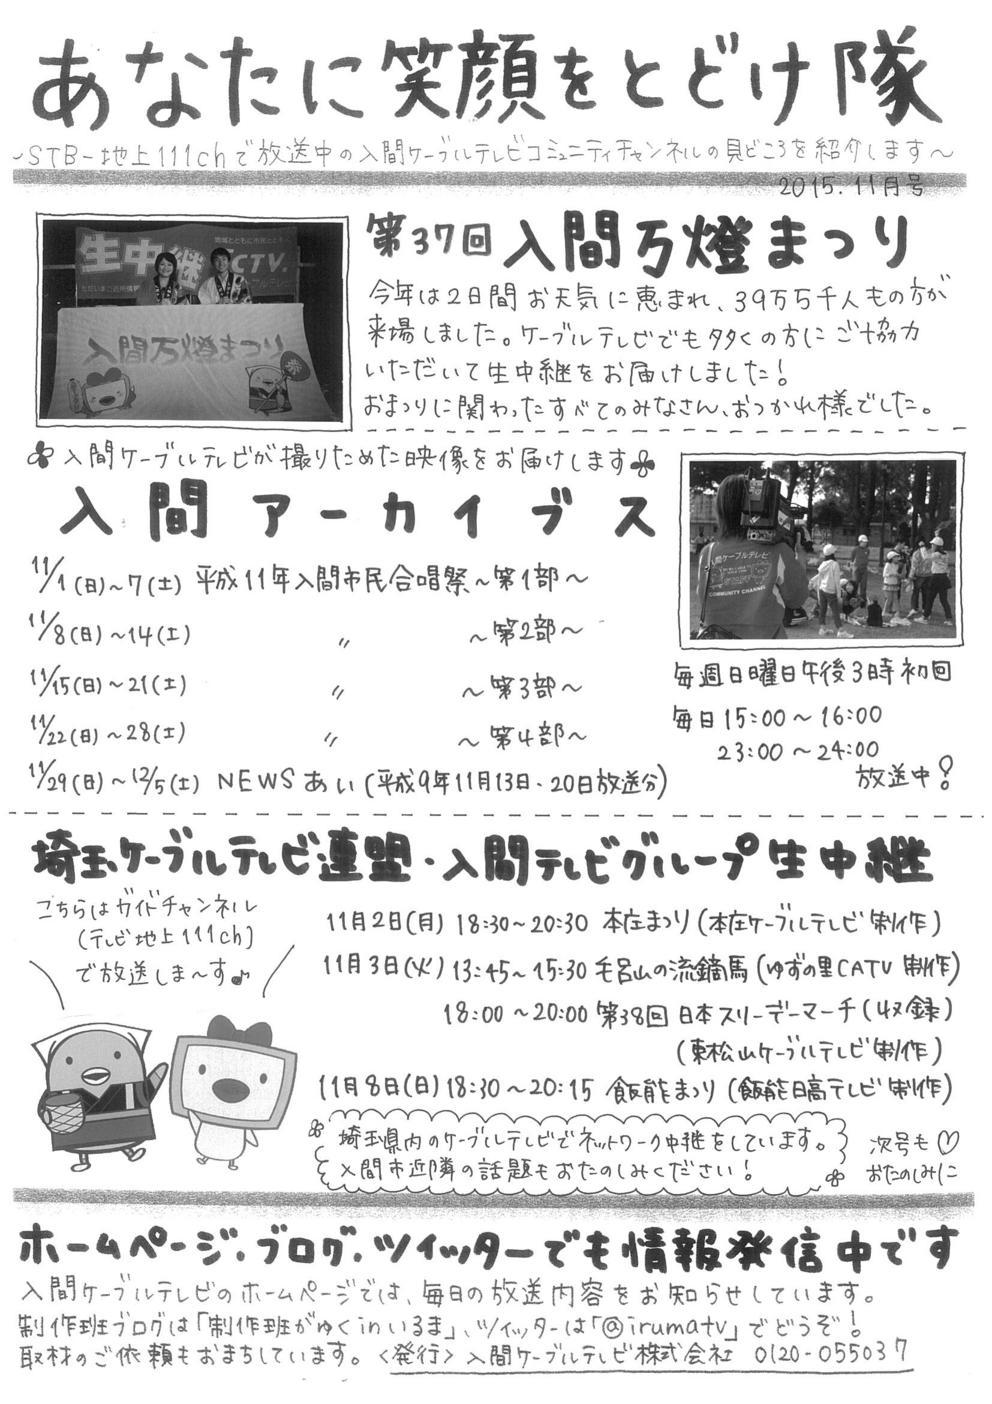 あなたに笑顔をとどけ隊
～STB-地上111chで放送中の入間ケーブルテレビコミュニティチャンネルの見どころを紹介します～
2015.11月号
生中継
ICTV.
入間万燈まつり
第37回 入間万燈まつり
今年は2日間お天気に恵まれ、39万5千人もの方が
来場しました。ケーブルテレビでも多くの方にご協力
いただいて生中継をお届けしました!
おまつりに関わったすべてのみなさん、おつかれ様でした。
入間ケーブルテレビが撮りためた映像をお届けします
入間アーカイブス
11/1(日)~7(土) 平成11年入間市民合唱祭~第1部~
11/8(日)~14(土) 〃 ~第2部~
11/15(日)~21(土) 〃 ~第3部~
11/22(日)~28(土) 〃 ~第4部~
11/29(日)~12/5(土) NEWSあい(平成9年11月13日・20日放送分)
入間ケーブルテレビ
COMMUNITY CHANNEL
毎週日曜日午後3時初回
毎日15:00~16:00
23:00~24:00
放送中!
埼玉ケーブルテレビ連盟・入間テレビグループ生中継
こちらはガイドチャンネル
(テレビ地上111ch)
で放送しま~す♪
11月2日(月) 18:30~20:30 本庄まつり(本庄ケーブルテレビ制作)
11月3日(火) 13:45~15:30 毛呂山の流鏑馬(ゆずの里CATV制作)
18:00~20:00 第38回日本スリーデーマーチ(収録)
(東松山ケーブルテレビ制作)
11月8日(日) 18:30~20:15 飯能まつり(飯能日高テレビ制作)
埼玉県内のケーブルテレビでネットワーク中継をしています。
入間市近隣の話題もおたのしみください!
次号も♡
おたのしみに
ホームページ、ブログ、ツイッターでも情報発信中です
入間ケーブルテレビのホームページでは、毎日の放送内容をお知らせしています。
制作班ブログは「制作班がゆくinいるま」、ツイッターは「@irumatv」でどうぞ!
取材のご依頼もおまちしています。<発行>入間ケーブルテレビ株式会社 0120-055037